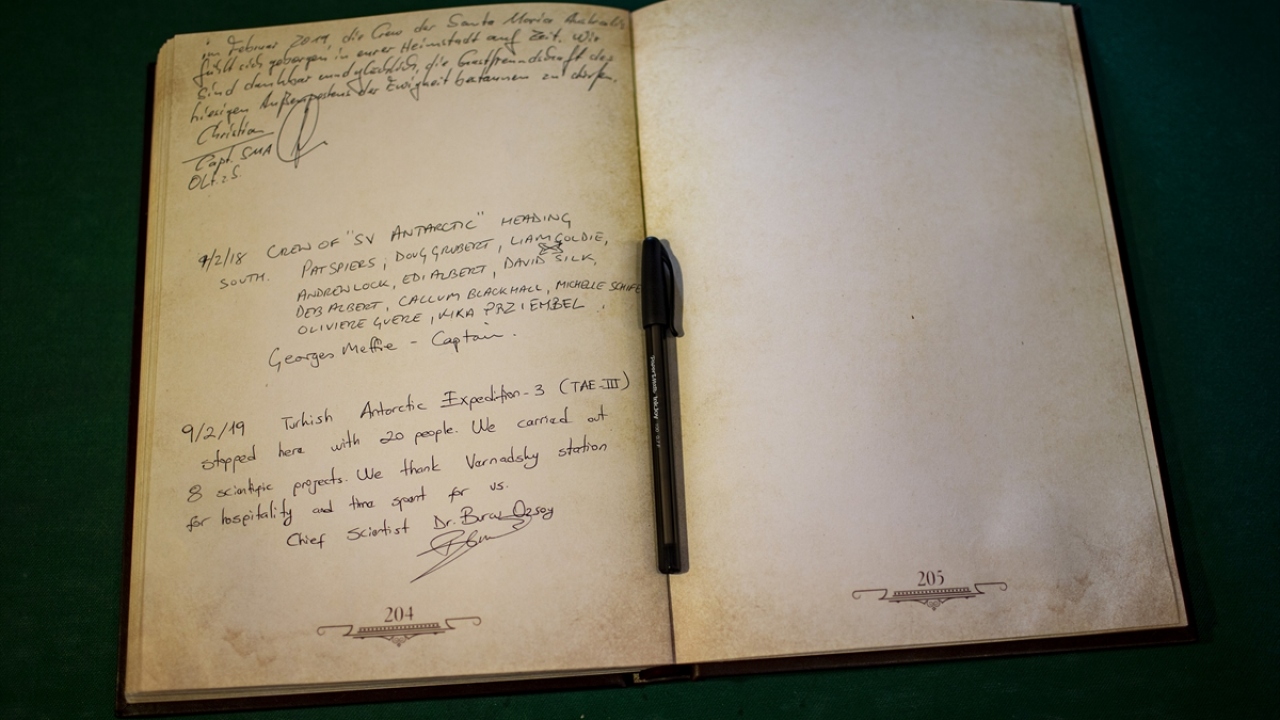 im Februar 2019, die Crew der Santa Maria Australis
fühlt sich geborgen in eurer Heimstadt auf Zeit. Wir
sind dankbar und glücklich, die Gastfreundschaft des
hiesigen Außenpostens der Ewigkeit bestaunen zu dürfen.
Christian
Capt. SMA
OLt. z. S.
9/2/18 CREW OF "SV ANTARCTIC" HEADING
SOUTH. PAT SPIERS, DOUG GRUBERT, LIAM GOLDIE,
ANDREW LOCK, EDI ALBERT, DAVID SILK,
DEB ALBERT, CALLUM BLACKHALL, MICHELLE
OLIVIERE GUERE, KIKA PRZIEMBEL.
Georges Meffre - Captain.
9/2/19 Turkish Antarctic Expedition-3 (TAE-III)
stopped here with 20 people. We carried out
8 scientific projects. We thank Varnadsky station
for hospitality and time spent for us.
Chief Scientist Dr. Burcu Ozsoy
204
205